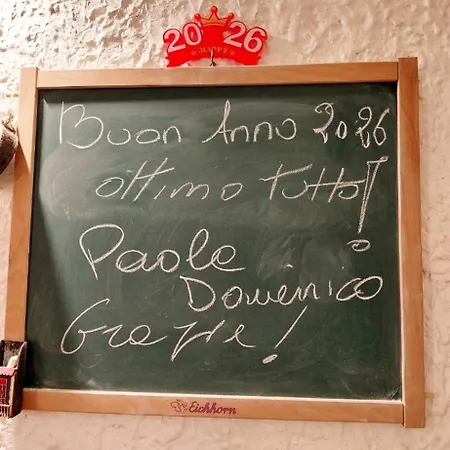 2026
HAPPY
Buon Anno 2026
ottimo tutto!
Paola
Domenico
Grazie!
Eichhorn